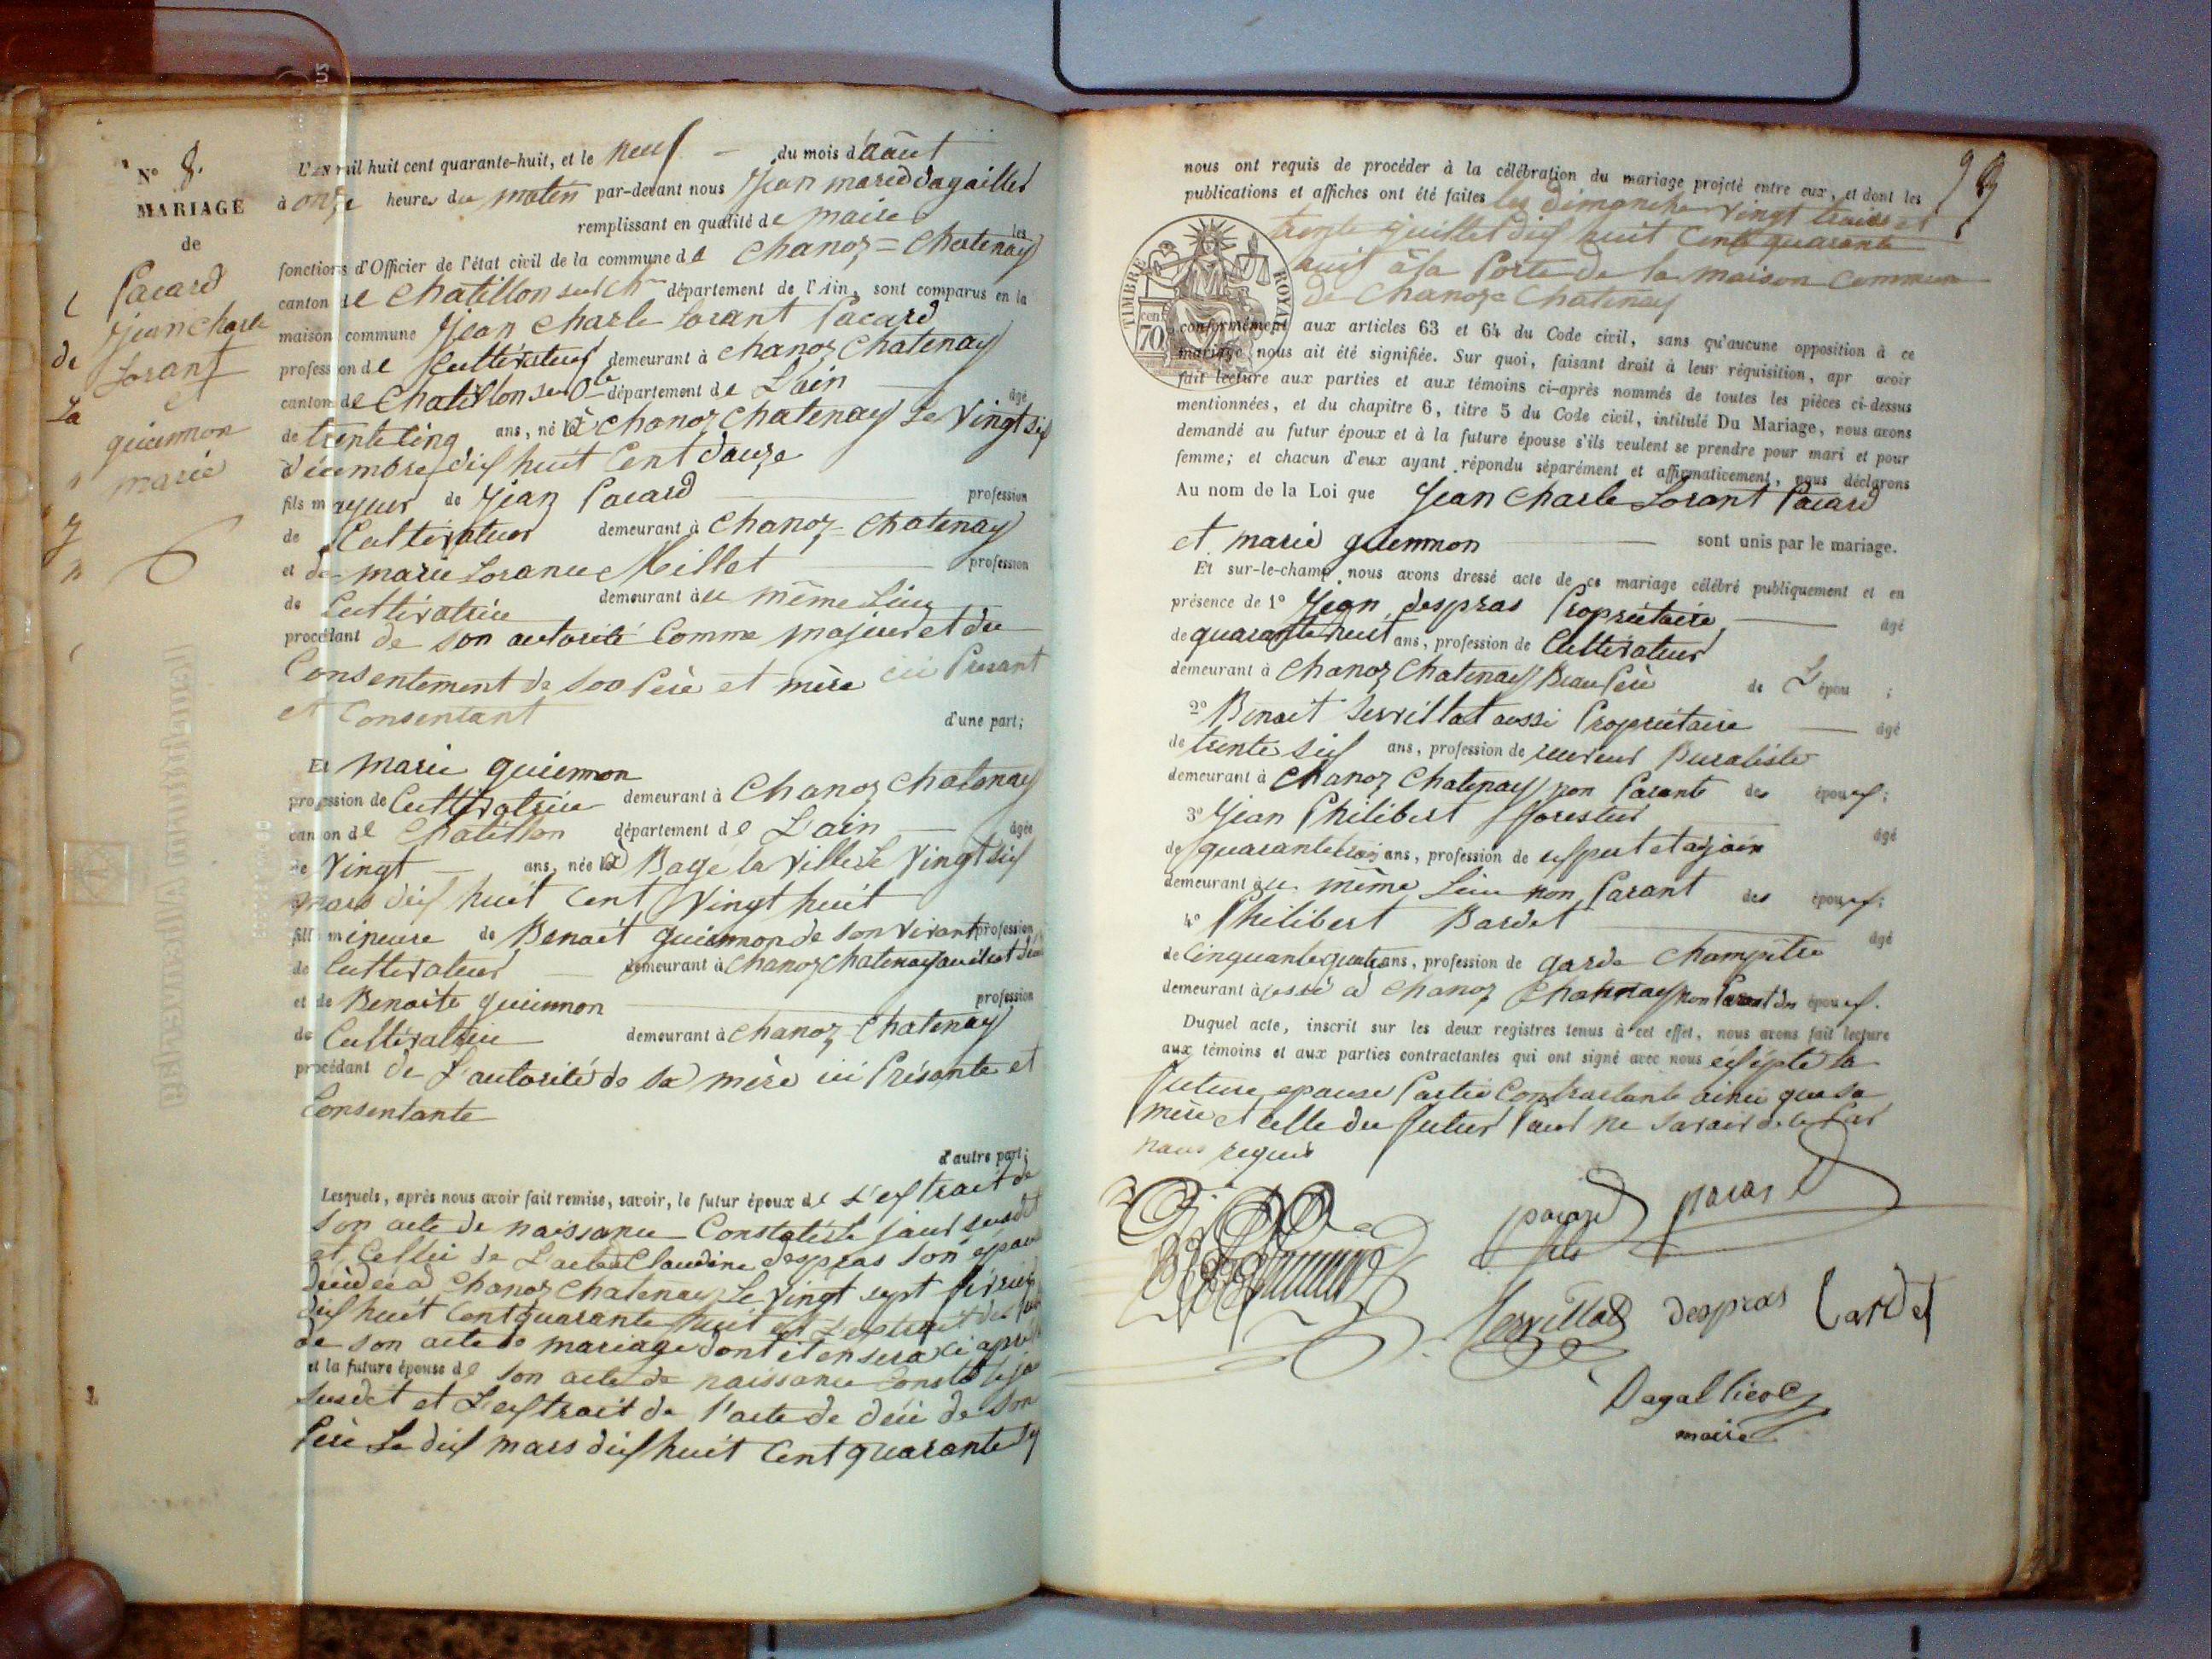 N° 8.
MARIAGE
de
Pacard
Jean Charle
Lorant
et
quiennon
marie
L'AN mil huit cent quarante-huit, et le neuf du mois d'aaût
à onze heures du matin par-devant nous Jean marie Dagallier
remplissant en qualité de maire les
fonctions d'Officier de l'état civil de la commune de Chanoz=Chatenay
canton de Chatillon sur Chne département de l'Ain, sont comparus en la
maison commune Jean Charle Lorant Pacard
profession de Cultivateur demeurant à Chanoz Chatenay
canton de Chatillon département de L'ain âgé
de trente cinq ans, né à Chanoz Chatenay Le Vingt six
décembre dix huit Cent douze
fils majeur de Jean Pacard profession
de Cultivateur demeurant à Chanoz-Chatenay
et de marie Lorance Millet profession
de Cultivatrice demeurant au même Lieu
procédant de son autorité Comme majeur et du
Consentement de son Père et mère ici Présant
et Consentant d'une part;
Et marie quiennon
profession de Cultivatrice demeurant à Chanoz Chatenay
canton de Chatillon département de L'ain âgée
de Vingt ans, née à Bage la Ville Le Vingt six
mars dix huit Cent Vingt huit
fille mineure de Benoit quiennon de son vivant profession
de Cultivateur demeurant à Chanoz Chatenay
et de Benoite quiennon profession
de Cultivatrice demeurant à Chanoz Chatenay
procédant de L'autorité de sa mère ici Présante et
Consentante
d'autre part;
Lesquels, après nous avoir fait remise, savoir, le futur époux de L'extrait de
son acte de naissance Constaté Le jour susdit
et Cellui de L'acte Claudine despras son
décédée à Chanoz Chatenay Le Vingt sept février
dix huit Cent quarante huit et L'extrait des
de son acte de mariage dont il en sera ci après
et la future épouse de son acte de naissance
susdit et L'extrait de l'acte de décé de son
Père Le dix mars dix huit Cent quarante
nous ont requis de procéder à la célébration du mariage projeté entre eux, et dont les
publications et affiches ont été faites les dimanche vingt trois et
trente Juillet dix huit Cent quarante
huit à la Porte de la maison Commune
de Chanoz=Chatenay
TIMBRE ROYAL
70 cen
conformément aux articles 63 et 64 du Code civil, sans qu'aucune opposition à ce
mariage nous ait été signifiée. Sur quoi, faisant droit à leur réquisition, apr avoir
fait lecture aux parties et aux témoins ci-après nommés de toutes les pièces ci-dessus
mentionnées, et du chapitre 6, titre 5 du Code civil, intitulé Du Mariage, nous avons
demandé au futur époux et à la future épouse s'ils veulent se prendre pour mari et pour
femme; et chacun d'eux ayant répondu séparément et affirmativement, nous déclarons
Au nom de la Loi que Jean Charle Lorant Pacard
et marie quiennon sont unis par le mariage.
Et sur-le-champ nous avons dressé acte de ce mariage célébré publiquement et en
présence de 1° Jean despras Propriétaire âgé
de quarante huit ans, profession de Cultivateur
demeurant à Chanoz Chatenay Beau Père de L'épou ;
2° Benoit Servillat aussi Propriétaire âgé
de trente six ans, profession de receveur Buraliste
demeurant à Chanoz Chatenay non Parante des époux;
3° Jean Philibert fforestier âgé
de quarante trois ans, profession de expert et
demeurant au même Lieu non Parant des époux;
4° Philibert Bardet âgé
de Cinquante quatre ans, profession de garde Champêtre
demeurant à Chanoz Chatenay non Parant des époux.
Duquel acte, inscrit sur les deux registres tenus à cet effet, nous avons fait lecture
aux témoins et aux parties contractantes qui ont signé avec nous exépté la
future epouse Partie Contractante ainci que sa
mère et celle du futur Pour ne Savoir de le Par
nous requis
pacard fils
pacard
Servillat
despras
Bardet
Dagallier
maire